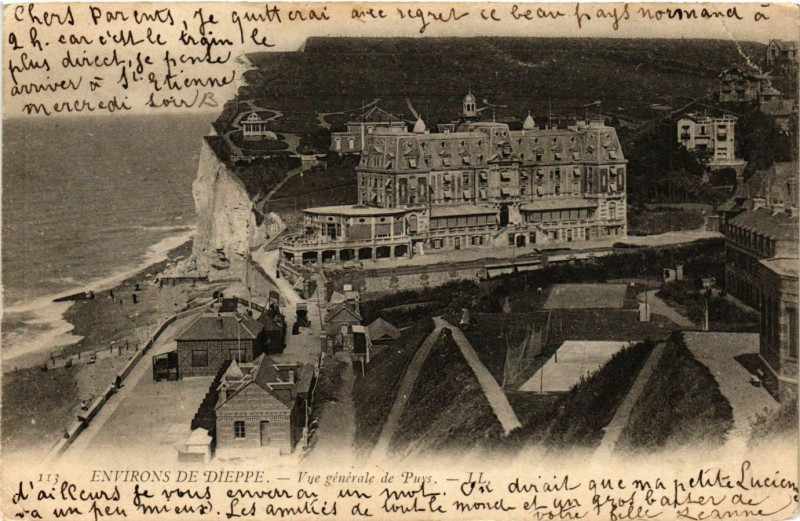 Chers Parents, Je quitterai avec regret ce beau pays normand à
2 h. car c'est le train le
plus direct, je pense
arriver à St Etienne
mercredi soir
113 ENVIRONS DE DIEPPE. — Vue générale de Puys. — LL.
d'ailleurs je vous enverrai un mot. On dirait que ma petite Lucienne
va un peu mieux. Les amitiés de tout le monde et un gros baiser de
votre fille Jeanne